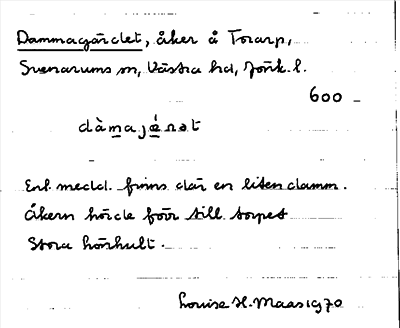 Dammagärdet, åker å Torarp,
Svenarums sn, Västra hd, Jönk. l.
600 -
dàmajǽrət
Enl. medd. finns där en liten damm.
Åkern hörde förr till torpet
Stora hörhult.
Louise H. Maas 1970